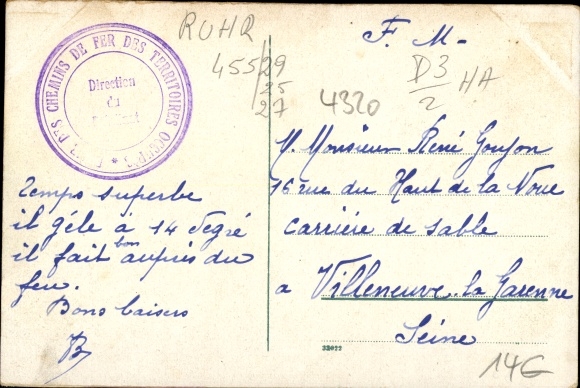 RUHR
455/29
25
27
F. M-
D3
2
HA
4320
DES CHEMINS DE FER DES TERRITOIRES
Direction
du
Temps superbe
il gèle à 14 degré
il fait bon auprès du
feu.
Bons baisers
B
M. Monsieur René Goujon
16 rue du Haut de la Noue
Carrière de sable
à Villeneuve-la Garenne
Seine
32022
14G